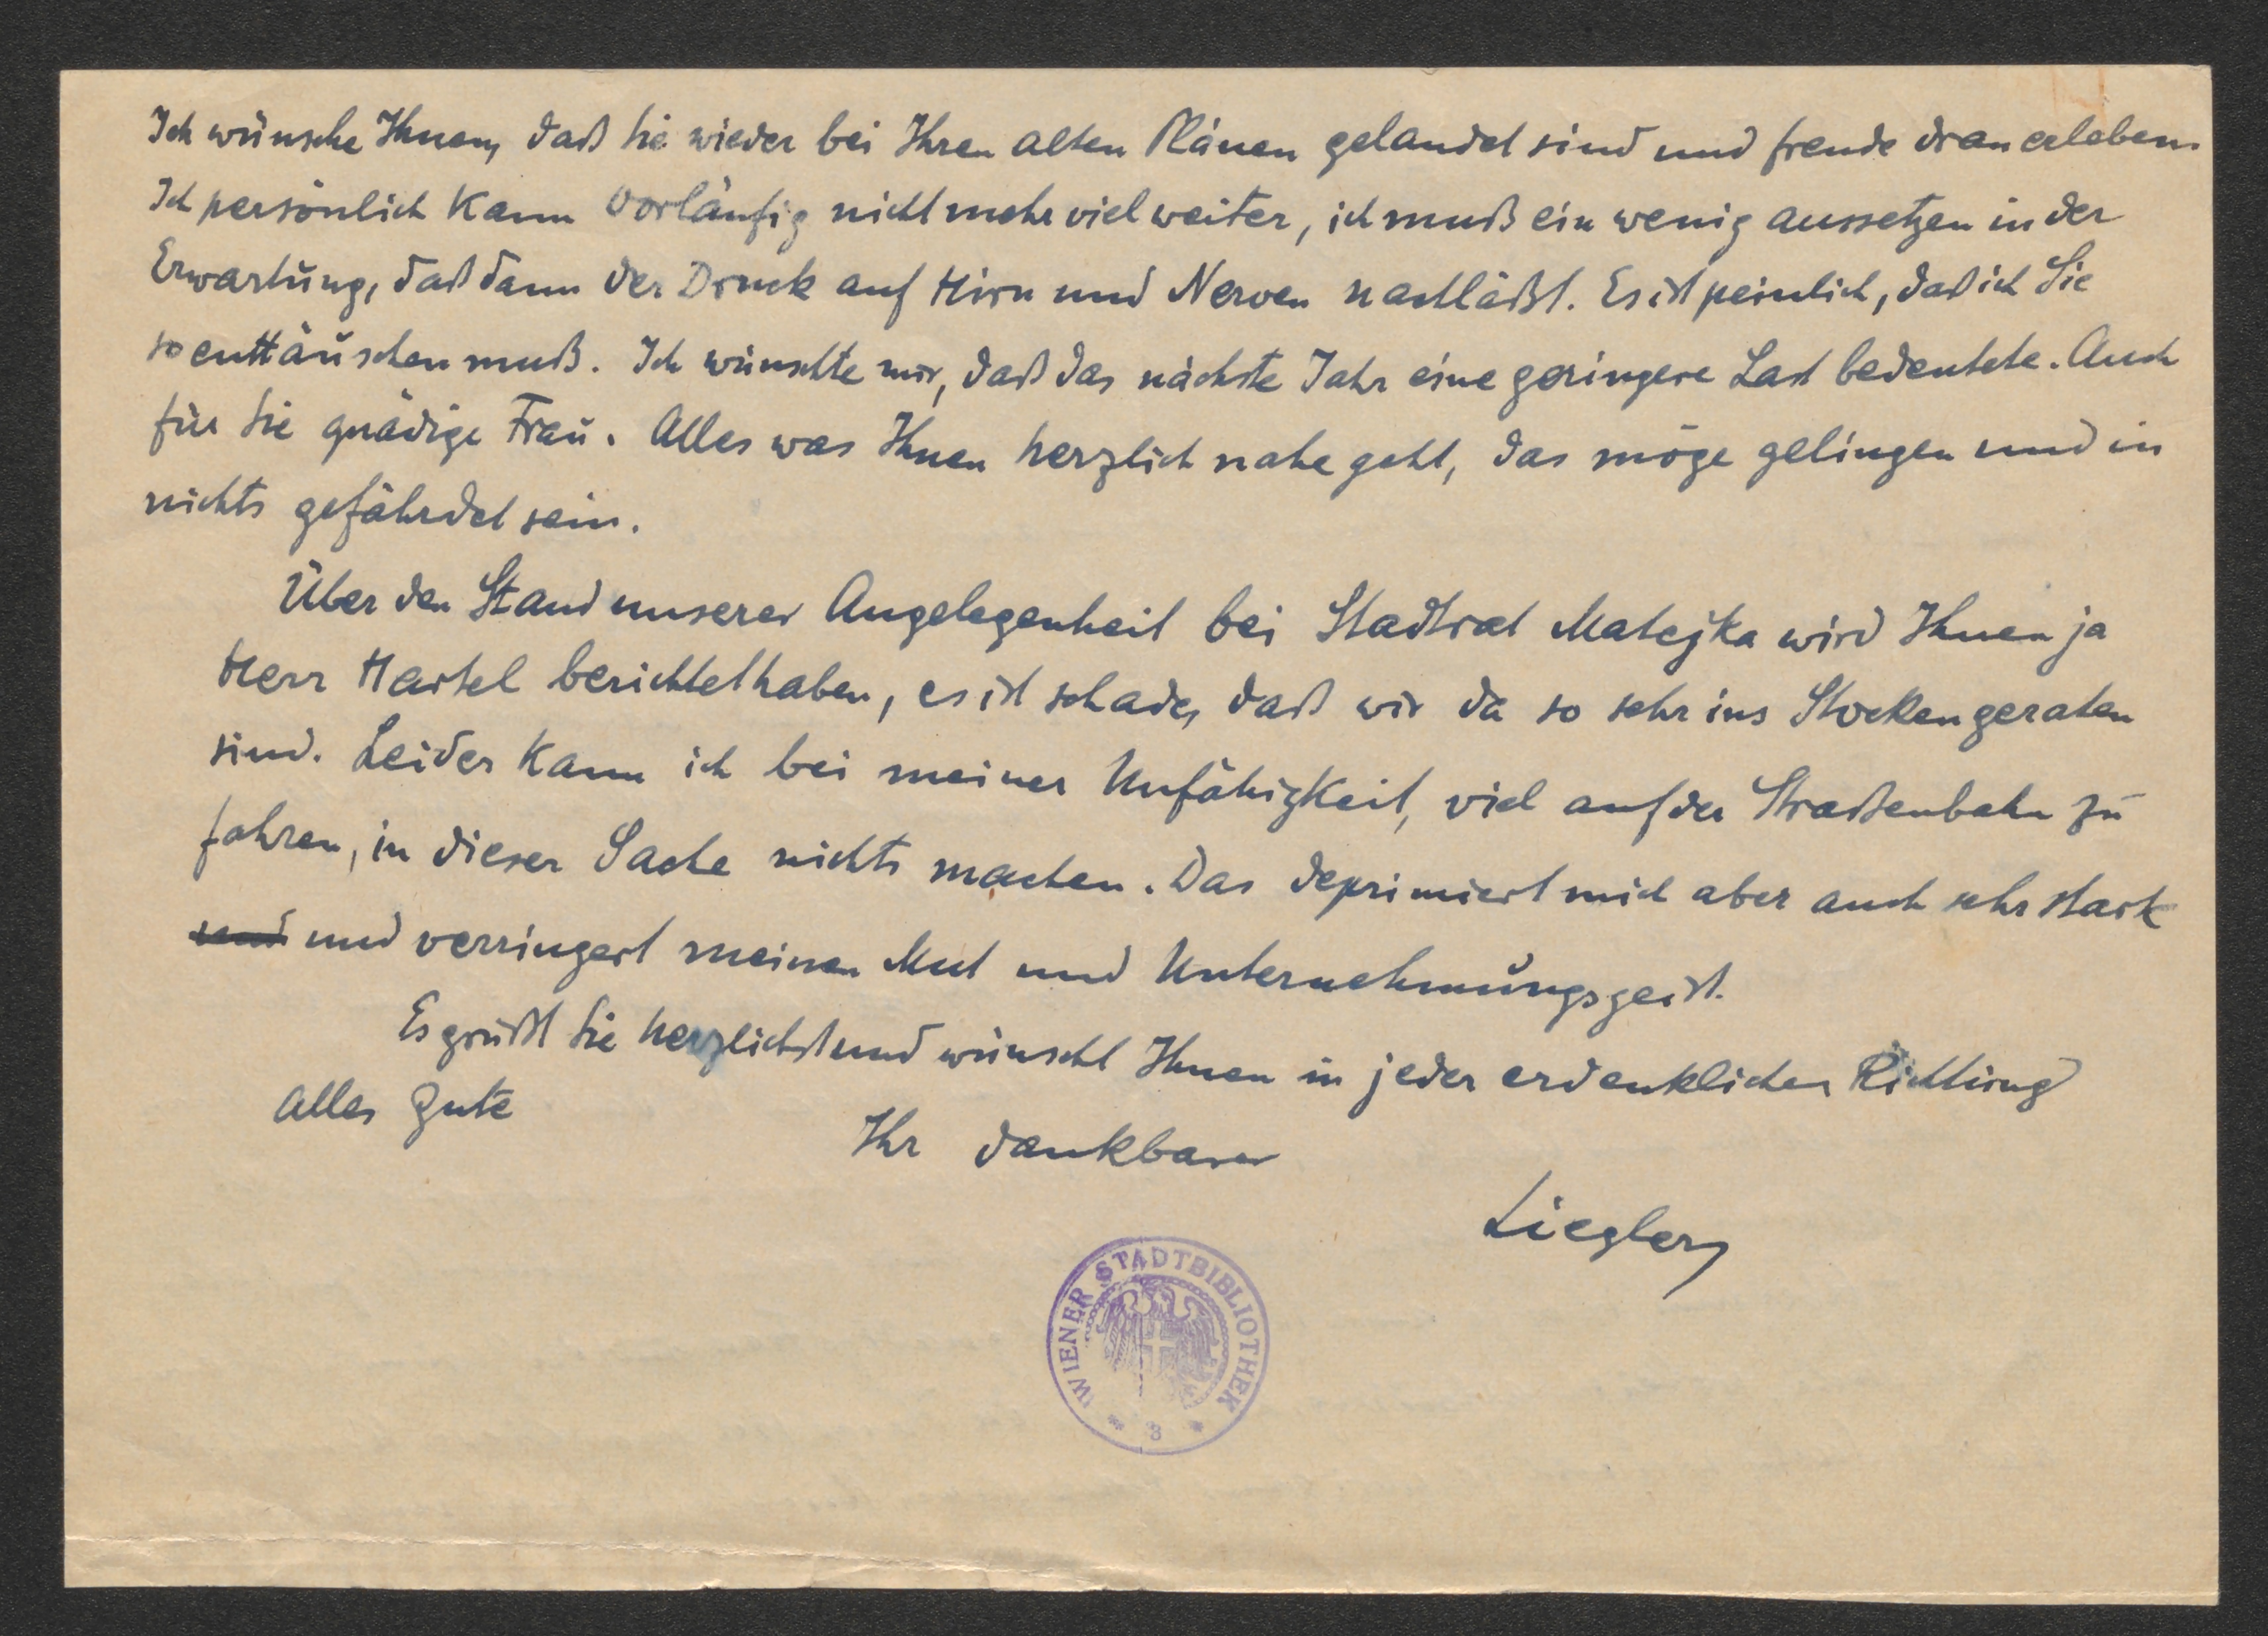 Ich wünsche Ihnen, daß Sie wieder bei Ihren alten Plänen gelandet sind und Freude dran erleben.
Ich persönlich kann vorläufig nicht mehr viel weiter, ich muß ein wenig aussetzen in der
Erwartung, daß dann der Druck auf Hirn und Nerven nachläßt. Es ist peinlich, daß ich Sie
so enttäuschen muß. Ich wünschte mir, daß das nächste Jahr eine geringere Last bedeutete. Auch
für Sie gnädige Frau. Alles was Ihnen herzlich nahe geht, das möge gelingen und in
nichts gefährdet sein.
Über den Stand unserer Angelegenheit bei Stadtrat Matejka wird Ihnen ja
Herr Hartel berichtet haben, es ist schade, daß wir da so sehr ins Stocken geraten
sind. Leider kann ich bei meiner Unfähigkeit, viel auf der Straßenbahn zu
fahren, in dieser Sache nichts machen. Das deprimiert mich aber auch sehr stark
und und verringert meinen Mut und Unternehmungsgeist.
Es grüßt Sie herzlichst und wünscht Ihnen in jeder erdenklichen Richtung
alles Gute
Ihr dankbarer
Liegler
WIENER STADTBIBLIOTHEK
* 3 *